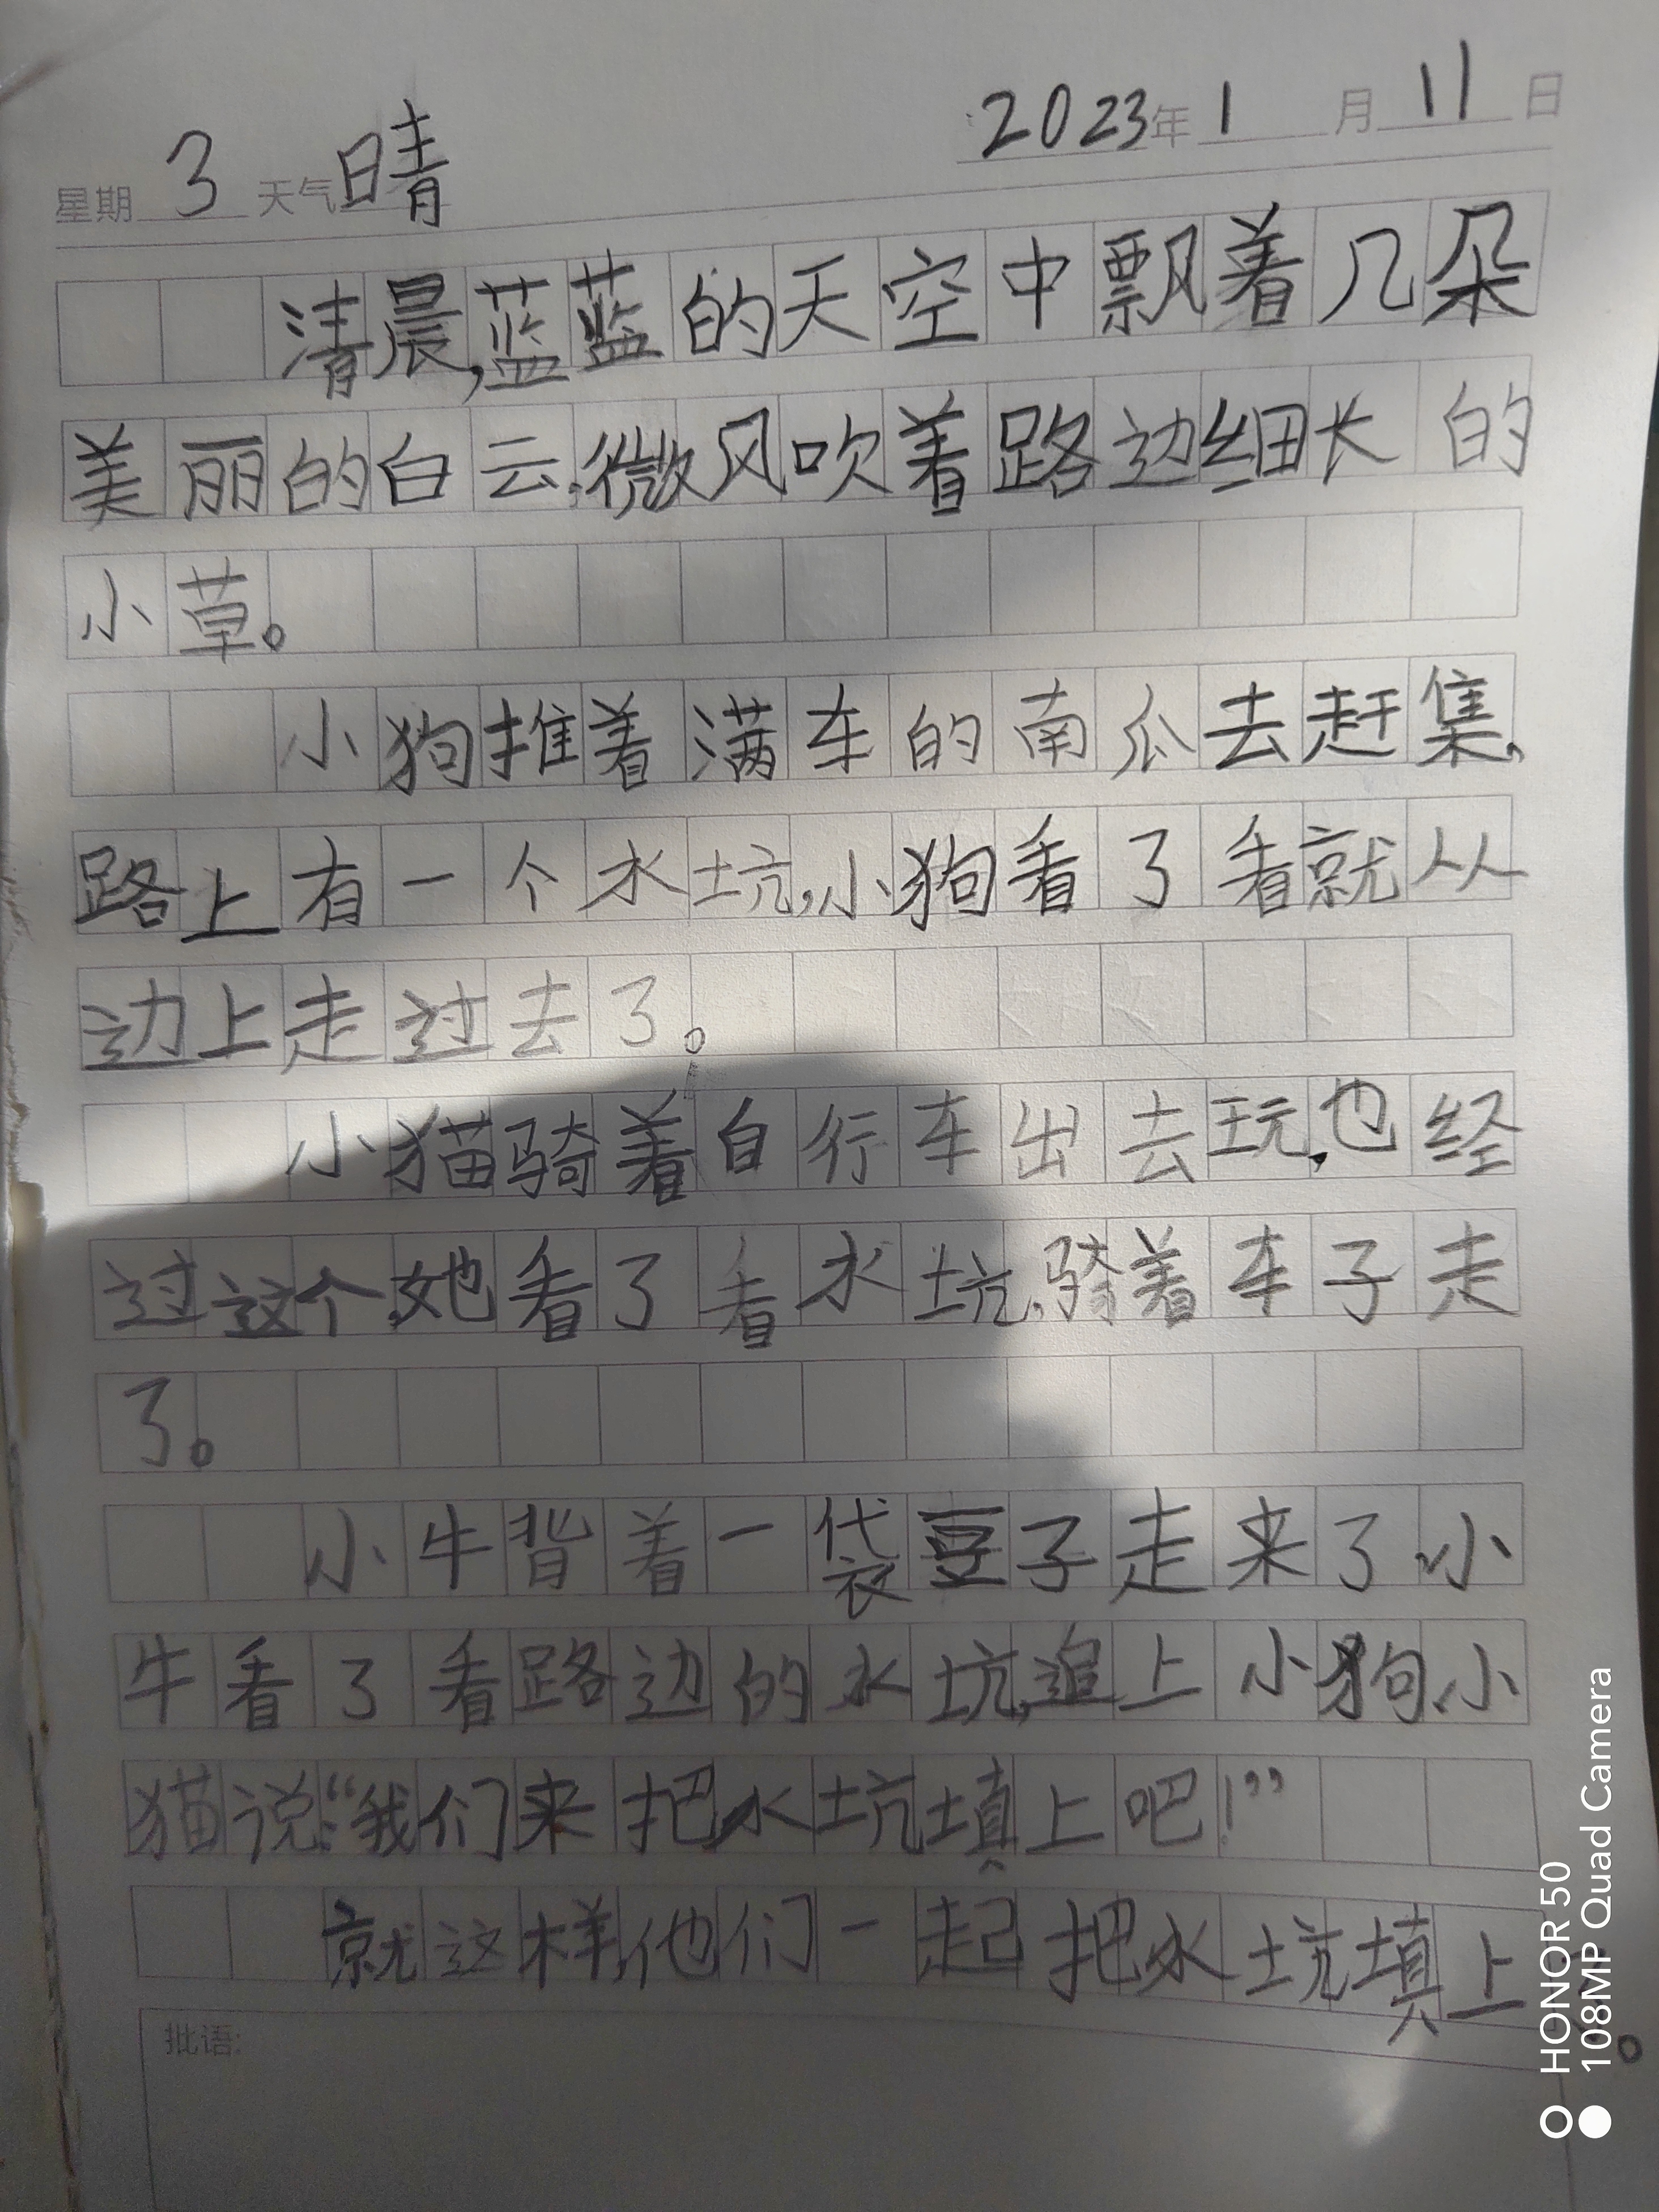 2023年1月11日
星期3天气晴
清晨,蓝蓝的天空中飘着几朵
美丽的白云,微风吹着路边细长的
小草。
小狗推着满车的南瓜去赶集,
路上有一个水坑,小狗看了看就从
边上走过去了。
小猫骑着自行车出去玩,也经
过这个,她看了看水坑,骑着车子走
了。
小牛背着一袋豆子走来了,小
牛看了看路边的水坑,追上小狗、小
猫说:“我们来把水坑填上吧!”
就这样,他们一起把水坑填上
。
批语:
HONOR 50
108MP Quad Camera